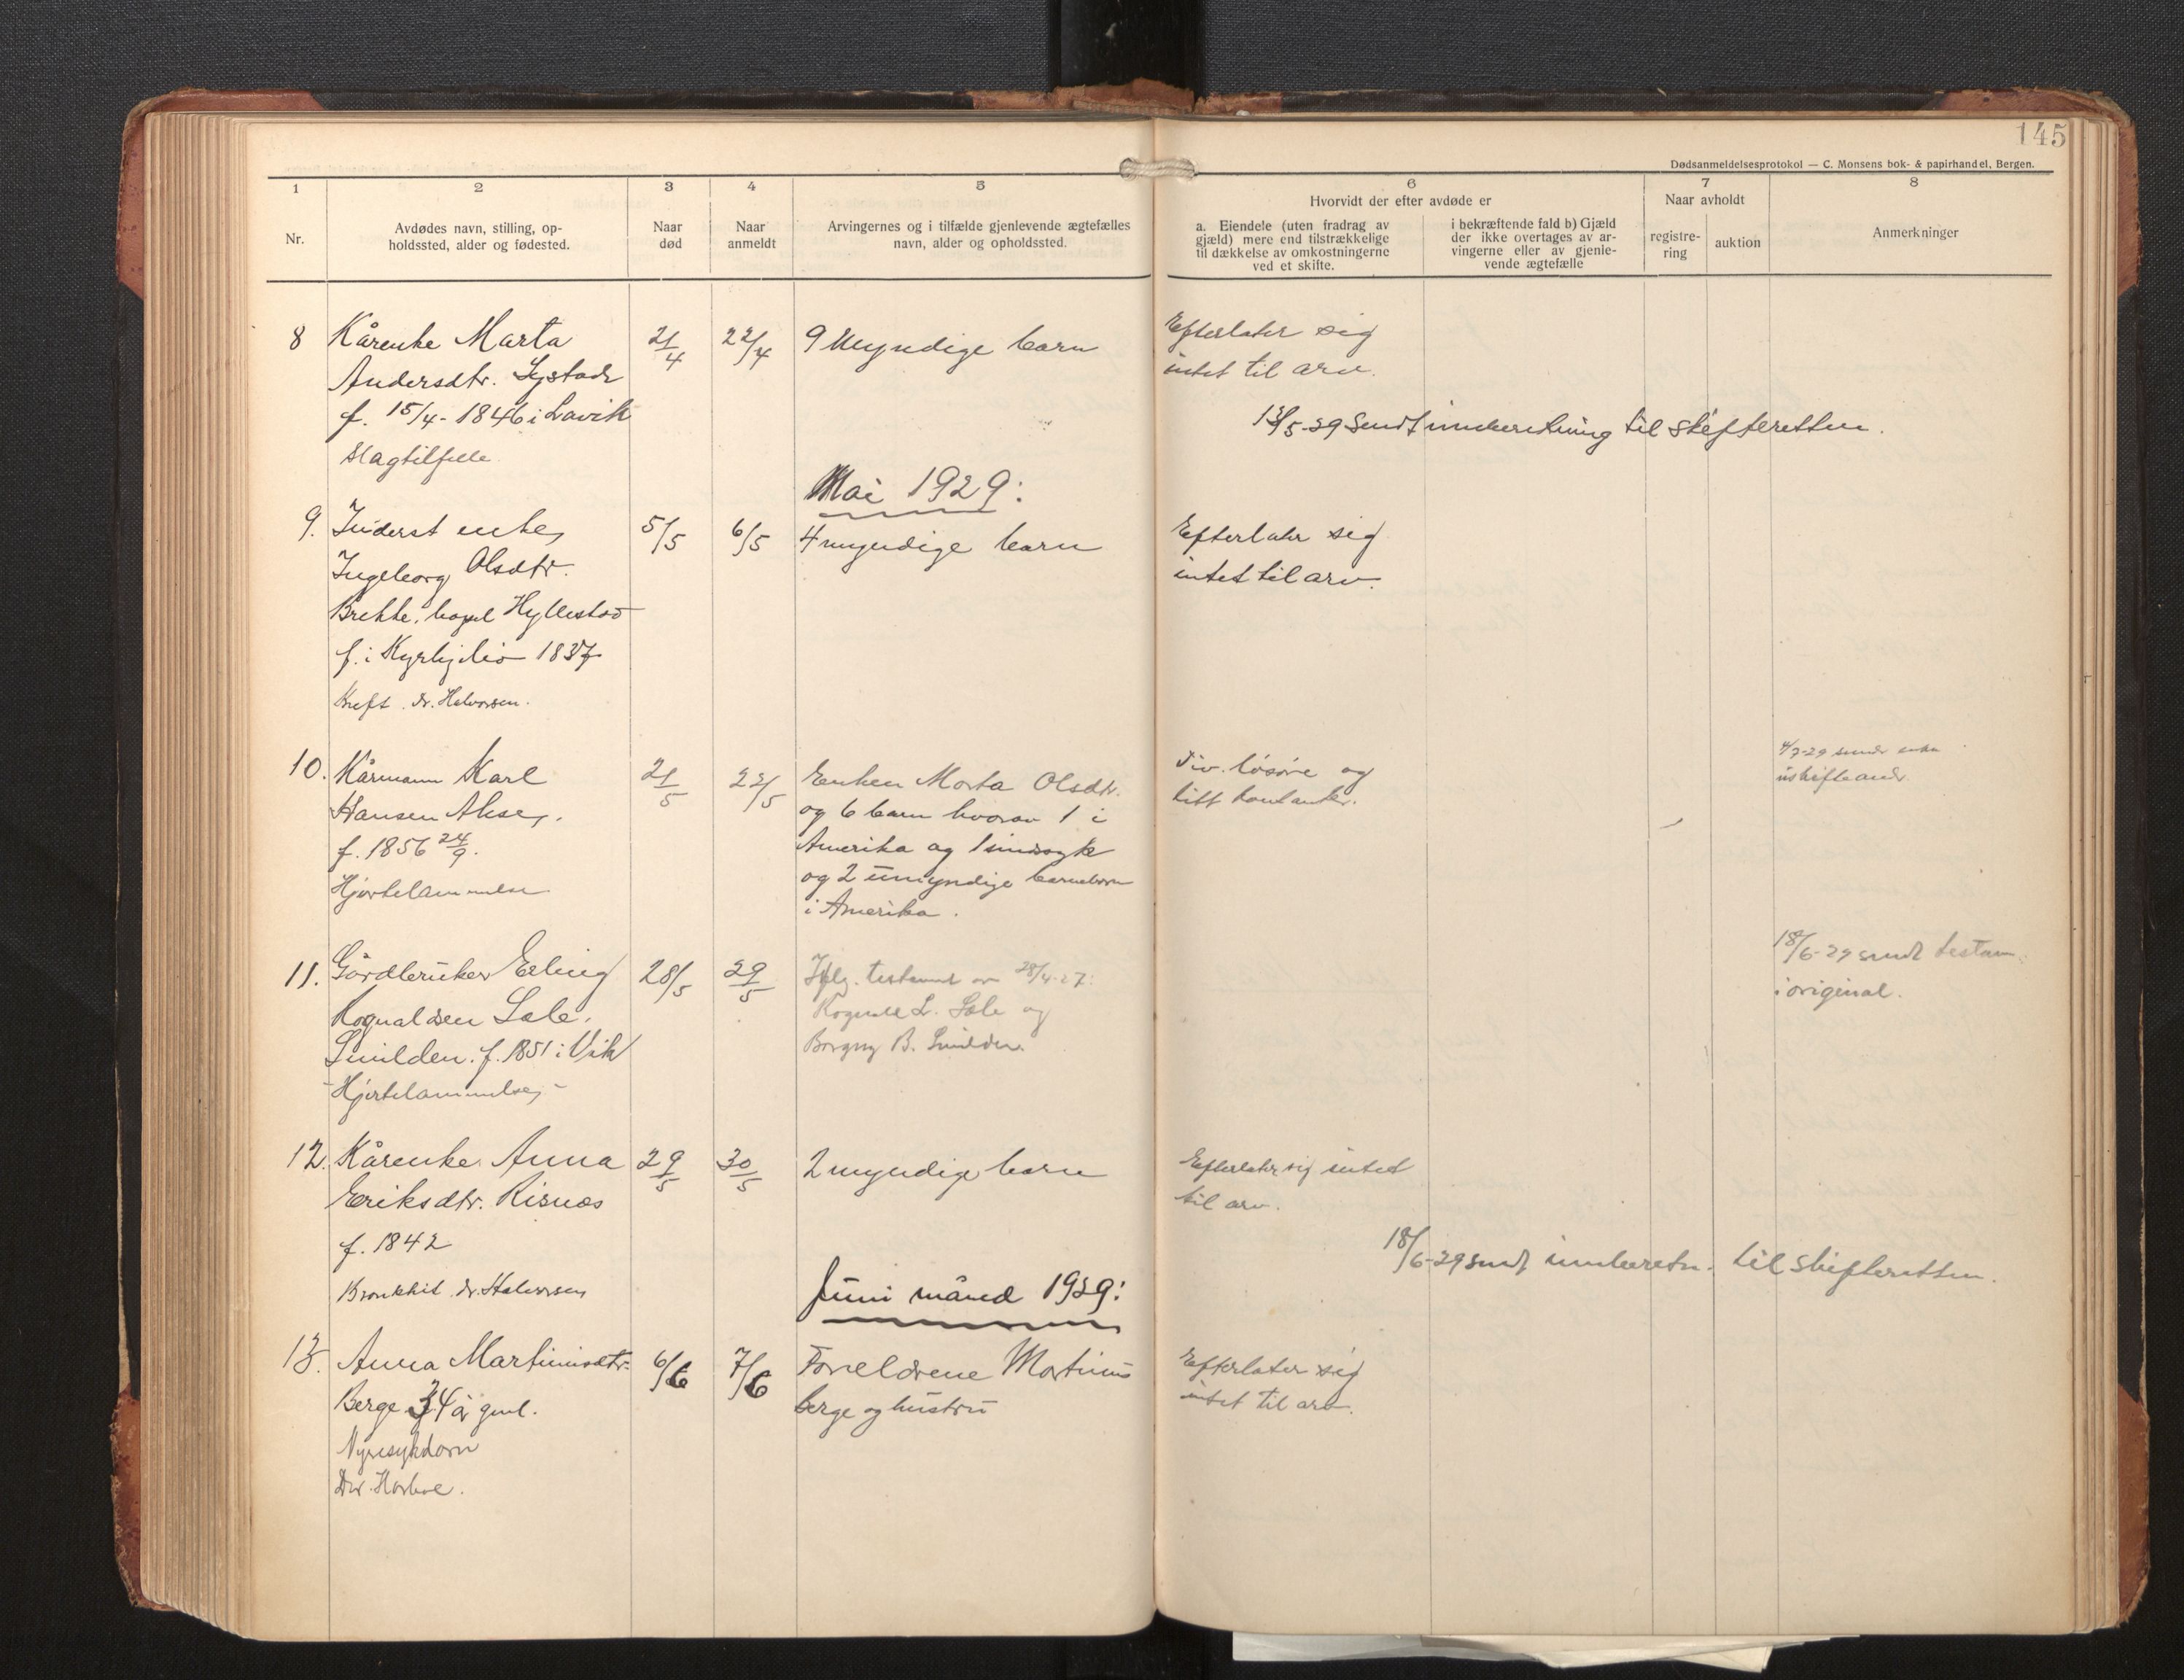 145
Dødsanmeldelsesprotokol — C. Monsens bok- & papirhandel, Bergen.
1 2 3 4 5 6 7 8
Nr.
Avdødes navn, stilling, op-
holdssted, alder og fødested.
Naar
død
Naar
anmeldt
Arvingernes og i tilfælde gjenlevende ægtefælles
navn, alder og opholdssted.
Hvorvidt der efter avdøde er
a. Eiendele (uten fradrag av
gjæld) mere end tilstrækkelige
til dækkelse av omkostningerne
ved et skifte.
i bekræftende fald b) Gjæld
der ikke overtages av ar-
vingerne eller av gjenle-
vende ægtefælle
Naar avholdt
registre-
ring
auktion
Anmerkninger
8 Kårenke Marta 21/4 22/4 9 Myndige barn Efterlater sig
Andersdtr. intet til arv.
f. 15/4-1846 i Lavik
13/5-29 Sendt innberetning til skifteretten.
Slagtilfelle
Mai 1929:
9. Inderst enke 5/5 6/5 4 myndige barn Efterlater sig
Ingeborg Olsdtr. intet til arv.
Brekke, Hyllestad
f. i 1837
Kreft. dr. Halvorsen.
10. Kårmann Karl 21/5 22/5 Enken Marta Olsdtr. Div. løsøre og 4/7-29 sendt
Hansen Akse, og 6 barn hvorav 1 i litt kontanter.
f. 1856 24/9. Amerika og 1 sindssyk
Hjertelammelse og 2 umyndige barnebarn
i Amerika.
11. Gårdbruker Erling 28/5 29/5 Iflg. testament av 28/4-27: 18/6-29 sendt testam.
Rognaldsen Sale, Rognald L. Sale og i original.
Smilden. f. 1851 i Vik Borgny B. Smilden.
- Hjertelammelse -
12. Kårenke Anna 29/5 30/5 2 myndige barn Efterlater sig intet
Eriksdtr. Risnes til arv.
f. 1842
18/6-29 sendt innberetn. til skifteretten.
Bronkhit. dr. Halvorsen
Juni måned 1929:
13. Anna Martinusdtr. 6/6 7/6 Foreldrene Martinus Efterlater sig
Berge 34 år gml. Berge og hustru intet til arv.
Nyresykdom